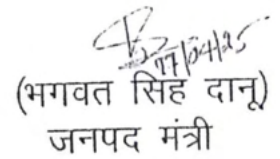 17/04/25
(भगवत सिंह दानू)
जनपद मंत्री